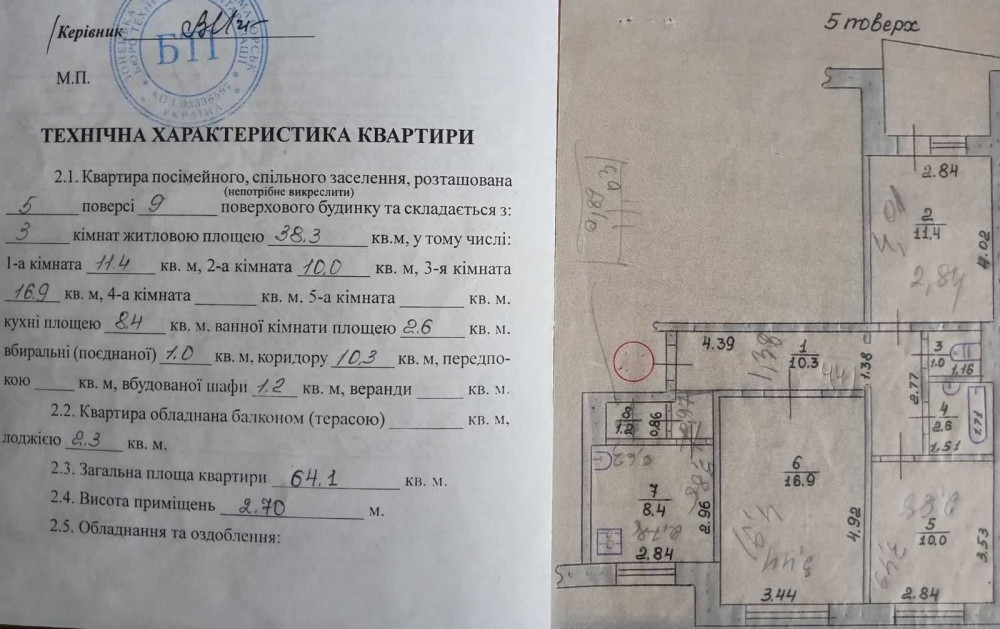 Керівник
БТІ
КОД 03336597
УКРАЇНА
М.П.
ТЕХНІЧНА ХАРАКТЕРИСТИКА КВАРТИРИ
2.1. Квартира посімейного, спільного заселення, розташована
(непотрібне викреслити)
5 поверсі 9 поверхового будинку та складається з:
3 кімнат житловою площею 38.3 кв.м, у тому числі:
1-а кімната 11.4 кв. м, 2-а кімната 10,0 кв. м, 3-я кімната
16.9 кв. м, 4-а кімната кв. м. 5-а кімната кв. м.
кухні площею 8.4 кв. м. ванної кімнати площею 2.6 кв. м.
вбиральні (поєднаної) 1.0 кв. м, коридору 10,3 кв. м, передпо-
кою кв. м, вбудованої шафи 1.2 кв. м, веранди кв. м.
2.2. Квартира обладнана балконом (терасою) кв. м,
лоджією 2.3 кв. м.
2.3. Загальна площа квартири 64.1 кв. м.
2.4. Висота приміщень 2.70 м.
2.5. Обладнання та оздоблення:
5 поверх
2.84
2
11.4
4.02
2,84
4.39
1
10.3
1.38
3
1.0
1.16
2.77
4
2.6
1.71
1.51
8
1.2
0.86
6
16.9
4.92
3.44
7
8.4
2.96
2.84
5
10.0
3.53
2.84